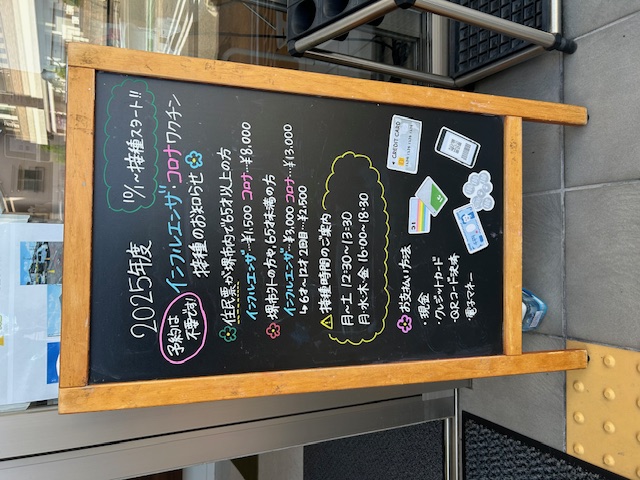 2025年度
10/1~接種スタート!!
予約は
不要です!
インフルエンザ・コロナワクチン
接種のお知らせ
住民票が堺市内で65才以上の方
インフルエンザ…¥1,500 コロナ…¥8,000
堺市外の方や、65才未満の方
インフルエンザ…¥3,000 コロナ…¥13,000
↳6才~12才 2回目…¥2,500
接種時間のご案内
月~土 12:30~13:30
月・水・木・金 16:00~18:30
お支払い方法
・現金
・クレジットカード
・QRコード決済
・電子マネー
CREDIT CARD
IC